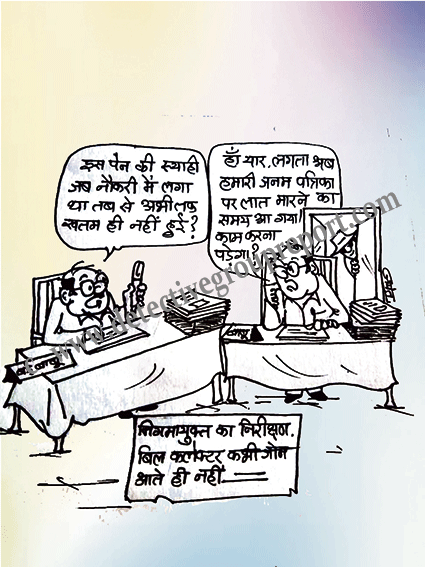 इस पेन की स्याही
जब नौकरी में लगा
था तब से अभी तक
खतम ही नहीं हुई?
हाँ यार, लगता अब
हमारी जनम पत्रिका
पर लात मारने का
समय आ गया।
काम करना
पड़ेगा!
www.detectivegroupreport.com
बाबू
निगमायुक्त का निरीक्षण,
बिल कलेक्टर कभी जोन
आते ही नहीं